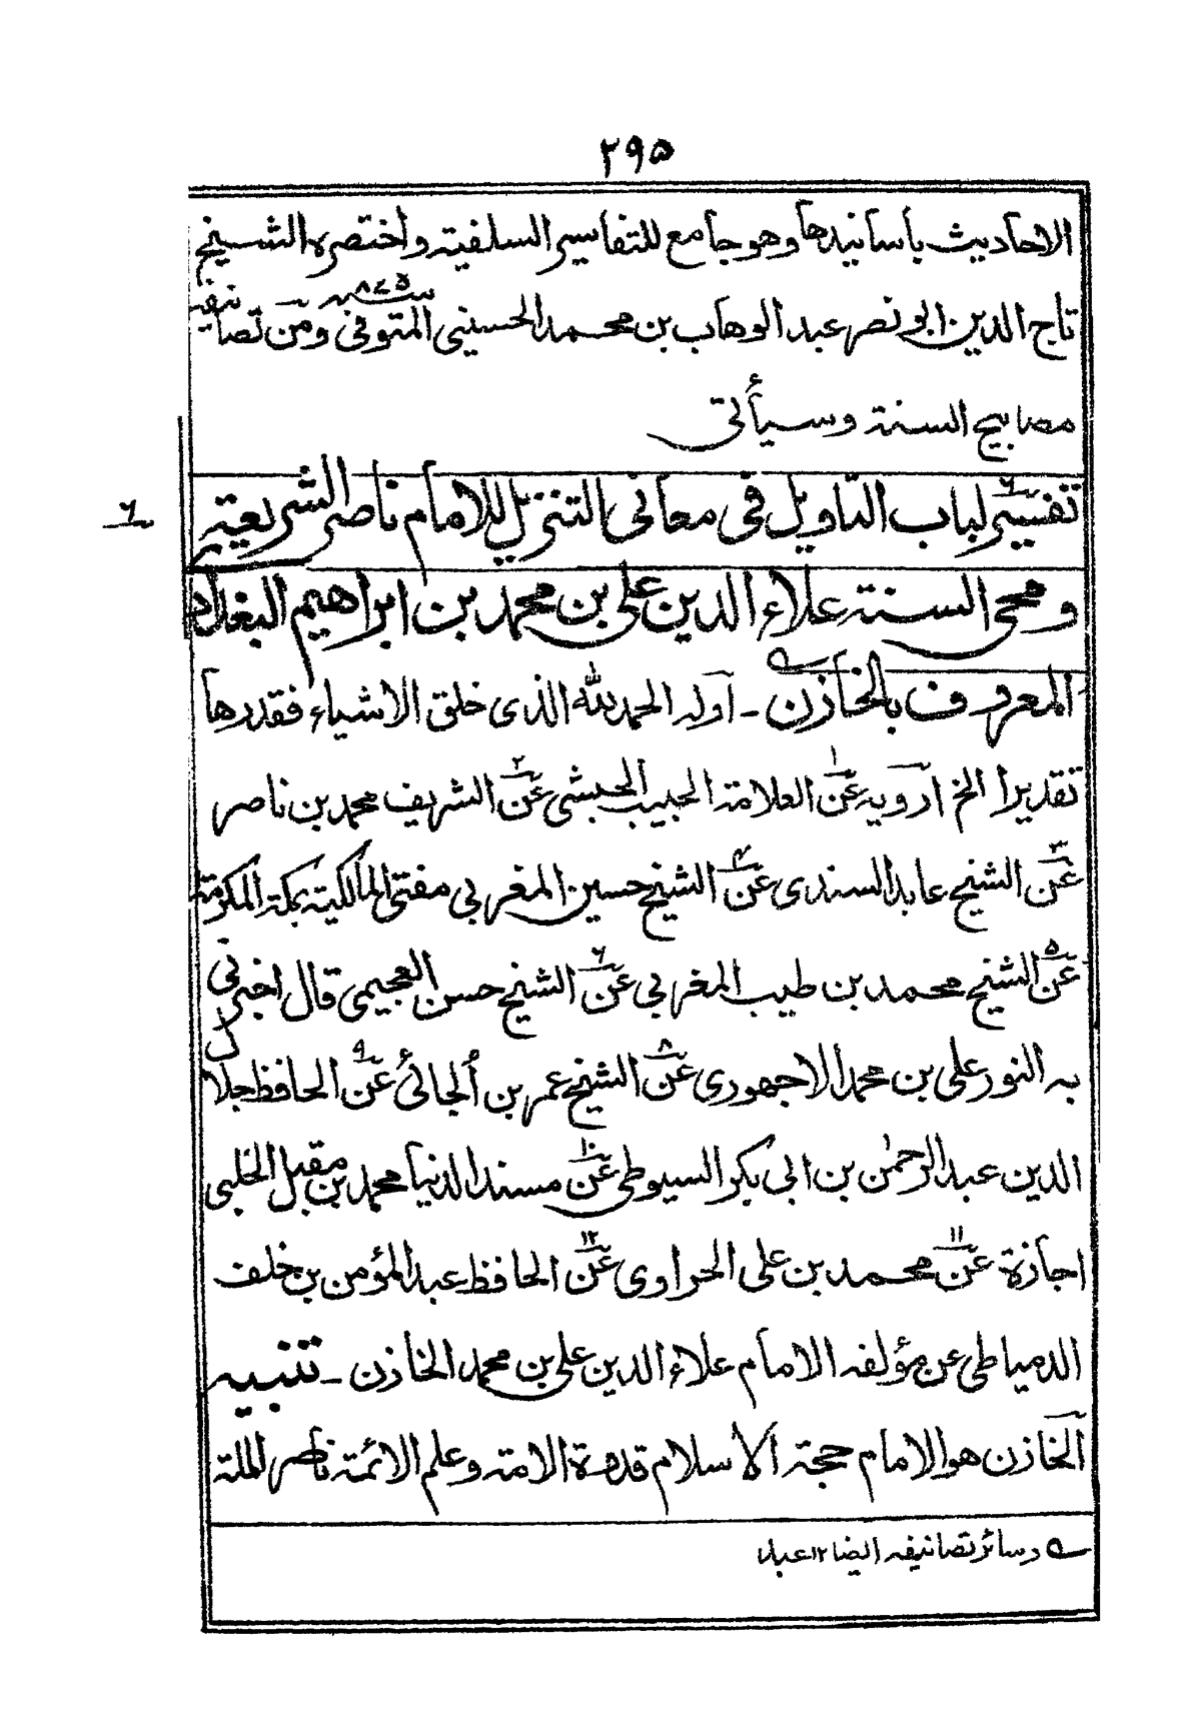 ۲۹۵
الاحاديث بأسانيدها وهو جامع للتفاسير السلفية وأختصره الشيخ
تاج الدين ابو نصر عبد الوهاب بن محمد الحسيني المتوفى سنة ۸۷۵ ومن تصانيفه
مصابيح السنة وسيأتي
۶
تفسير لباب التاويل في معاني التنزيل للامام ناصر الشريعة
ومحي السنة علاء الدين علي بن محمد بن ابراهيم البغداد
المعروف بالخازن - اوله الحمد لله الذي خلق الاشياء فقدرها
تقديرا الخ ارويه عن ۱ العلامة الحبيب الحبشي عن ۲ الشريف محمد بن ناصر
عن ۳ الشيخ عابد السندي عن ۴ الشيخ حسين المغربي مفتي المالكية بمكة المكرمة
عن ۵ الشيخ محمد بن طيب المغربي عن ۶ الشيخ حسن العجيمي قال اخبرني
به النور علي بن محمد الاجهوري عن ۸ الشيخ عمر بن ألجائي عن ۹ الحافظ جلال
الدين عبد الرحمن بن ابي بكر السيوطي عن ۱۰ مسند الدنيا محمد بن مقبل الحلبي
اجازة عن ۱۱ محمد بن علي الحراوي عن ۱۲ الحافظ عبد المؤمن بن خلف
الدمياطي عن مؤلفه الامام علاء الدين علي بن محمد الخازن - تنبيه
الخازن هو الامام حجة الاسلام قدوة الامة وعلم الائمة ناصر الملة
وسائر تصانيفه ايضا ۱۲ عبد